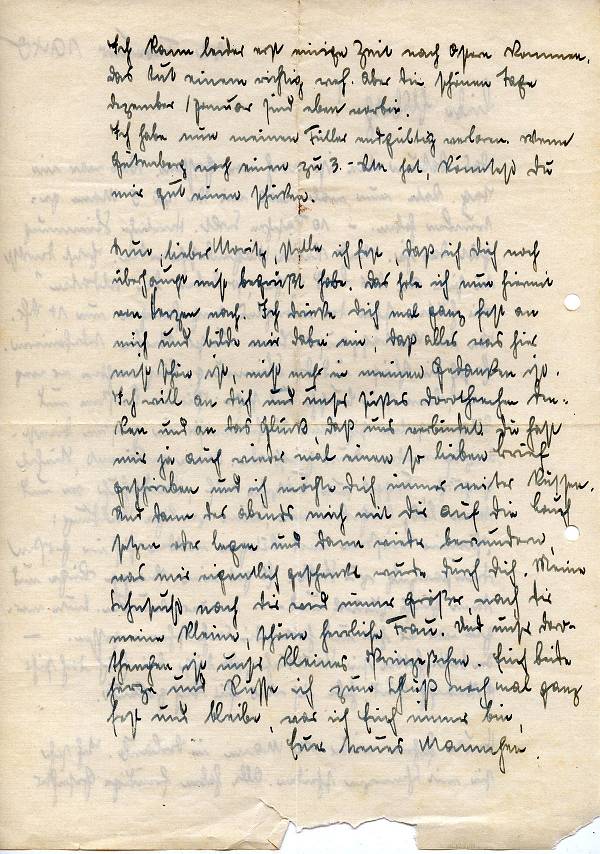 Ich kann leider erst einige Zeit nach Ostern kommen,
das tut einem richtig weh. Aber die schönen Tage
Dezember / Januar sind eben vorbei.
Ich habe nun meinen Füller endgültig verloren. Wenn
Gutenberg noch einen zu 3.- hat, könntest Du
mir gut einen schicken.
Nun, lieber Moritz, stelle ich fest, daß ich Dich noch
überhaupt nicht begrüßt habe. Das hole ich nun hiermit
von Herzen nach. Ich drücke Dich mal ganz fest an
mich und bilde mir dabei ein, daß alles was hier
nicht schön ist, nicht mehr in meinen Gedanken ist.
Ich will an Dich und unser süßes Dortchenchen den-
ken und an das Glück, daß uns verbindet. Du hast
mir ja auch wieder mal einen so lieben Brief
geschrieben und ich möchte Dich immer weiter küssen.
Und dann des abends mich mit Dir auf die Couch
setzen oder legen und dann wieder bewundern,
was mir eigentlich geschenkt wurde durch Dich. Meine
Sehnsucht nach Dir wird immer größer, nach Dir
meine kleine, schöne herrliche Frau. Und unser Dort-
chenchen ist unser kleines Prinzeßchen. Euch beide
herze und küsse ich zum Schluß noch mal ganz
fest und bleibe, was ich Euch immer bin,
Euer treues Männchen.